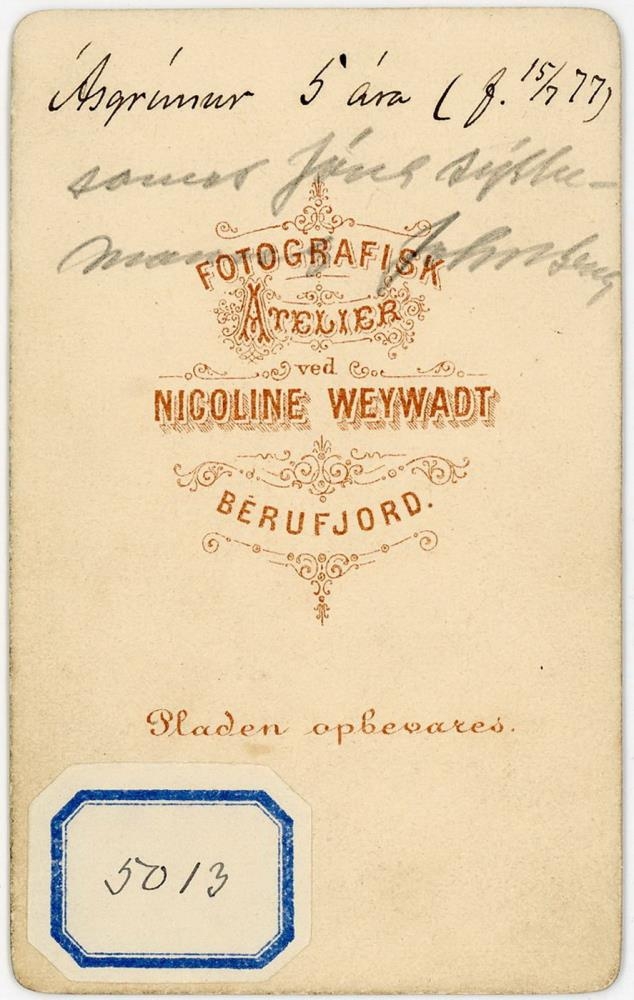 Ásgrímur 5 ára (f. 15/7 77)
sonur Jóns sýslu-
manns Johnsens
FOTOGRAFISK
ATELIER
ved
NICOLINE WEYWADT
BERUFJORD.
Pladen opbevares.
5013